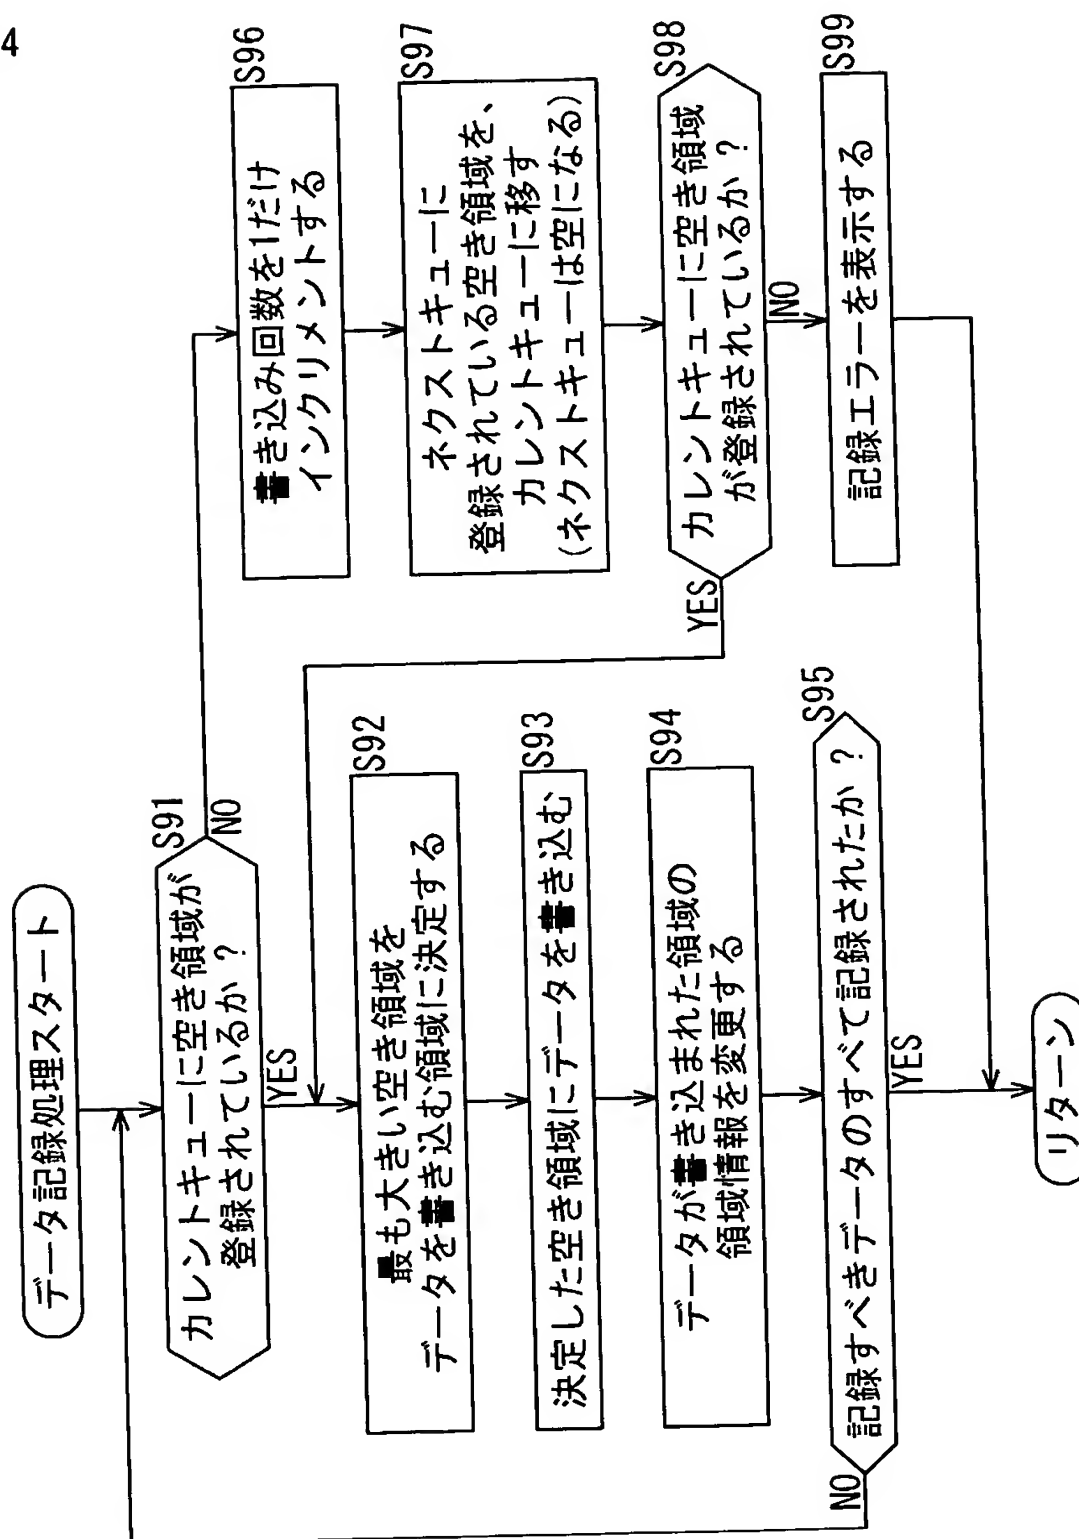 4
データ記録処理スタート
S91
カレントキューに空き領域が
登録されているか?
YES
NO
S92
最も大きい空き領域を
データを書き込む領域に決定する
S93
決定した空き領域にデータを書き込む
S94
データが書き込まれた領域の
領域情報を変更する
S95
記録すべきデータのすべて記録されたか?
NO
YES
リターン
S96
書き込み回数を1だけ
インクリメントする
S97
ネクストキューに
登録されている空き領域を、
カレントキューに移す
(ネクストキューは空になる)
S98
カレントキューに空き領域
が登録されているか?
YES
NO
S99
記録エラーを表示する